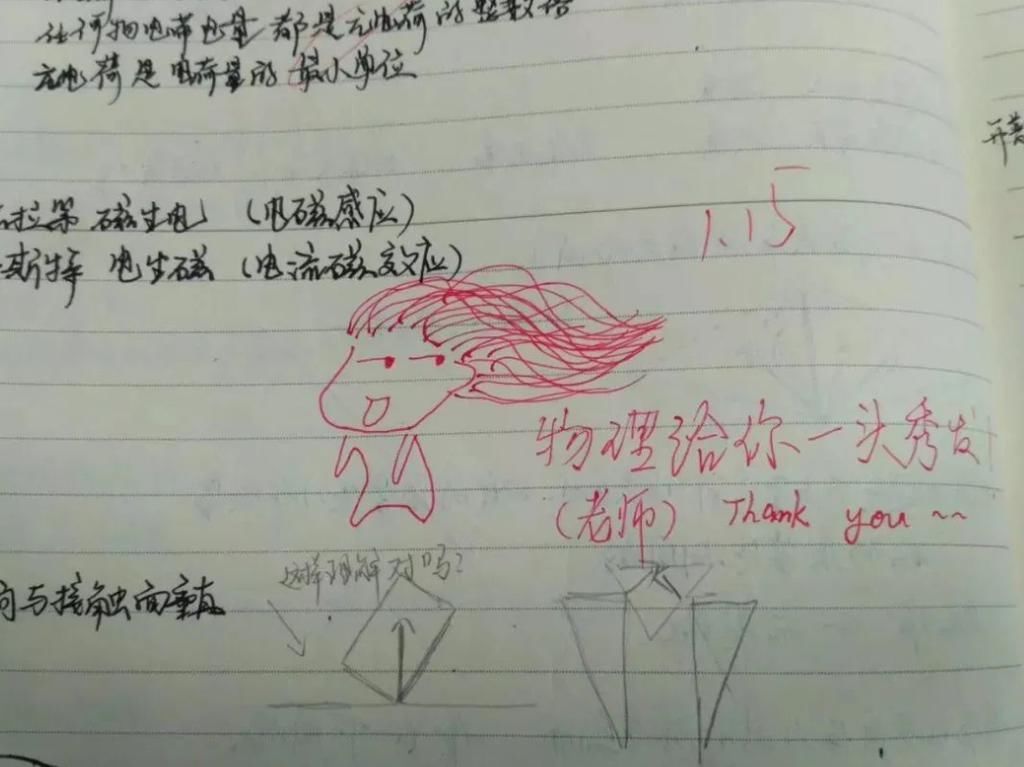 任何物电带电量都是元电荷的整数倍
元电荷是电荷量的最小单位
开普
拉第 磁生电 (电磁感应)
1.15
斯特 电生磁 (电流磁效应)
物理给你一头秀发
(老师) Thank you ~~
这样理解对吗?
向与接触面垂直